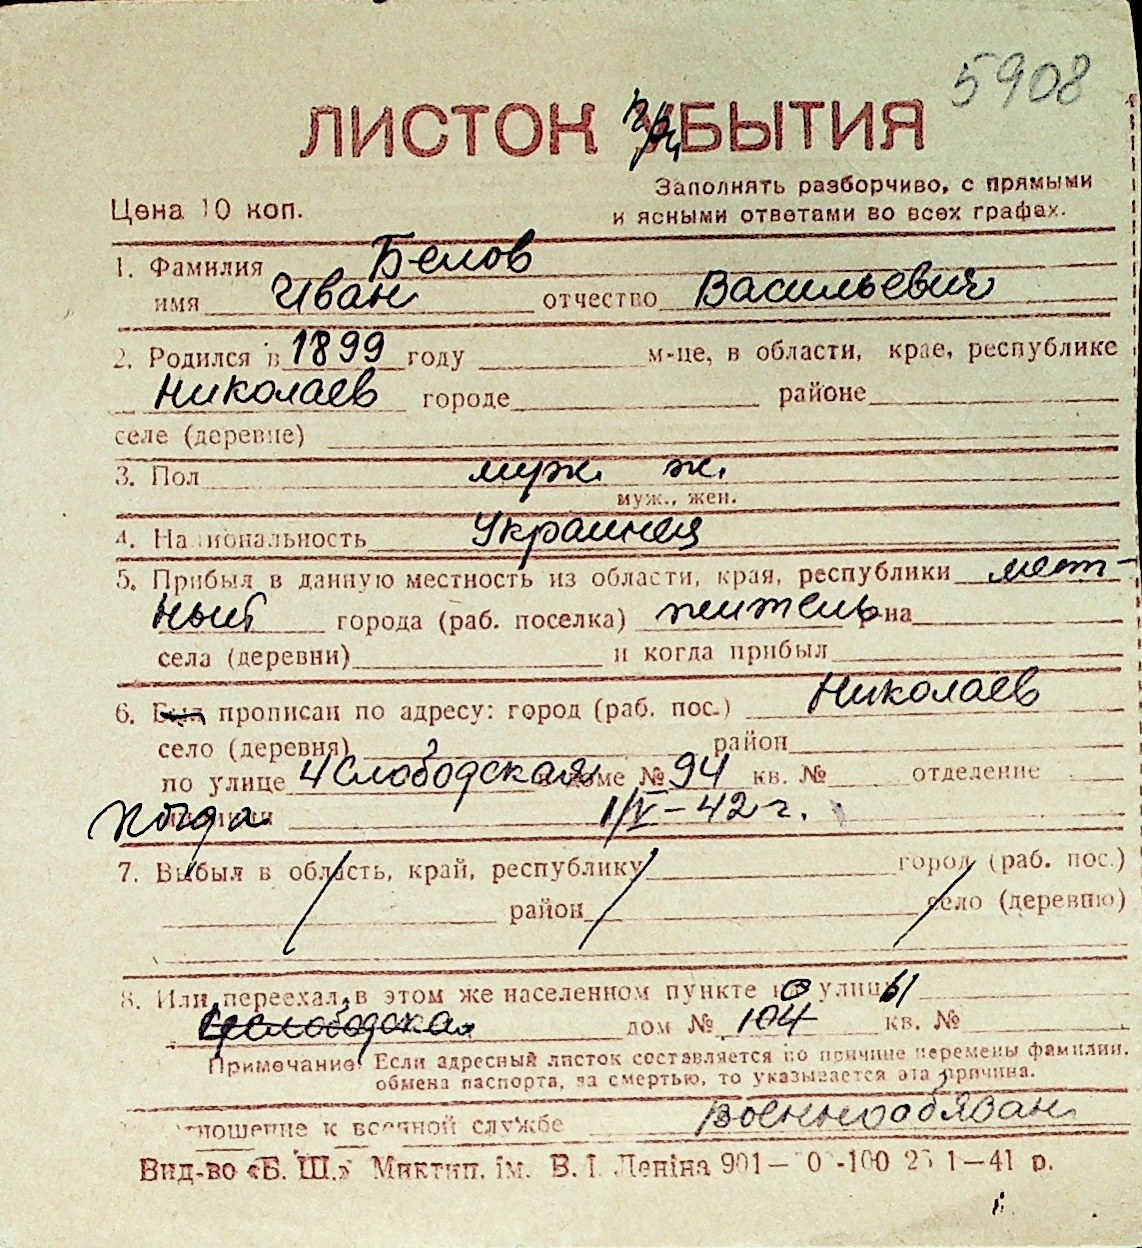 5908
ЛИСТОК прБЫТИЯ
Заполнять разборчиво, с прямыми
Цена 10 коп. и ясными ответами во всех графах.
1. Фамилия Белов
имя Иван отчество Васильевич
2. Родился в 1899 году м-це, в области, крае, республике
Николаев городе районе
селе (деревне)
3. Пол муж. ж.
муж., жен.
4. Национальность Украинец
5. Прибыл в данную местность из области, края, республики мест-
ный города (раб. поселка) житель р-на
села (деревни) и когда прибыл
6. Был прописан по адресу: город (раб. пос.) Николаев
село (деревня) район
по улице 4 Слободская в доме № 94 кв. № отделение
когда 1/IV-42 г.
7. Выбыл в область, край, республику город (раб. пос.)
район село (деревню)
8. Или переехал в этом же населенном пункте с улицы
Слободская дом № 104 кв. №
Примечание: Если адресный листок составляется по причине перемены фамилии,
обмена паспорта, за смертью, то указывается эта причина.
отношение к военной службе Военнообязан
Вид-во «Б. Ш.» Миктип. ім. В. І. Леніна 901— 0 -100 25 1—41 р.